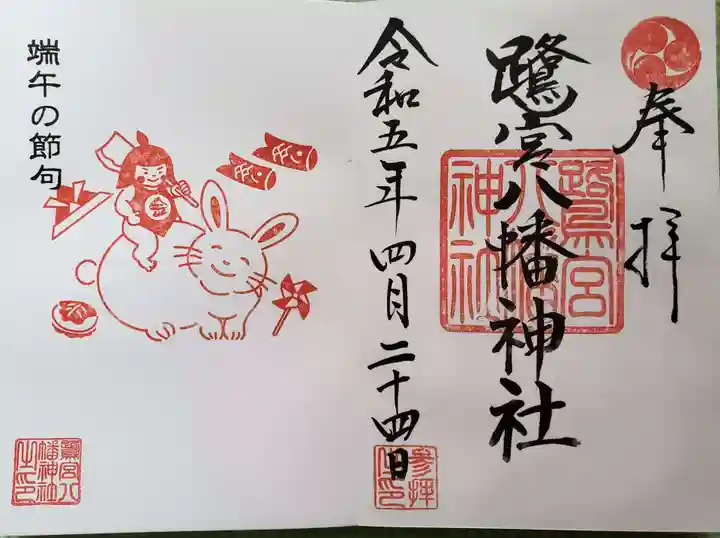 奉拝
鷺宮八幡神社
鷺宮八幡神社
令和五年四月二十四日
参拝
端午の節句
金
鷺宮八幡神社之印